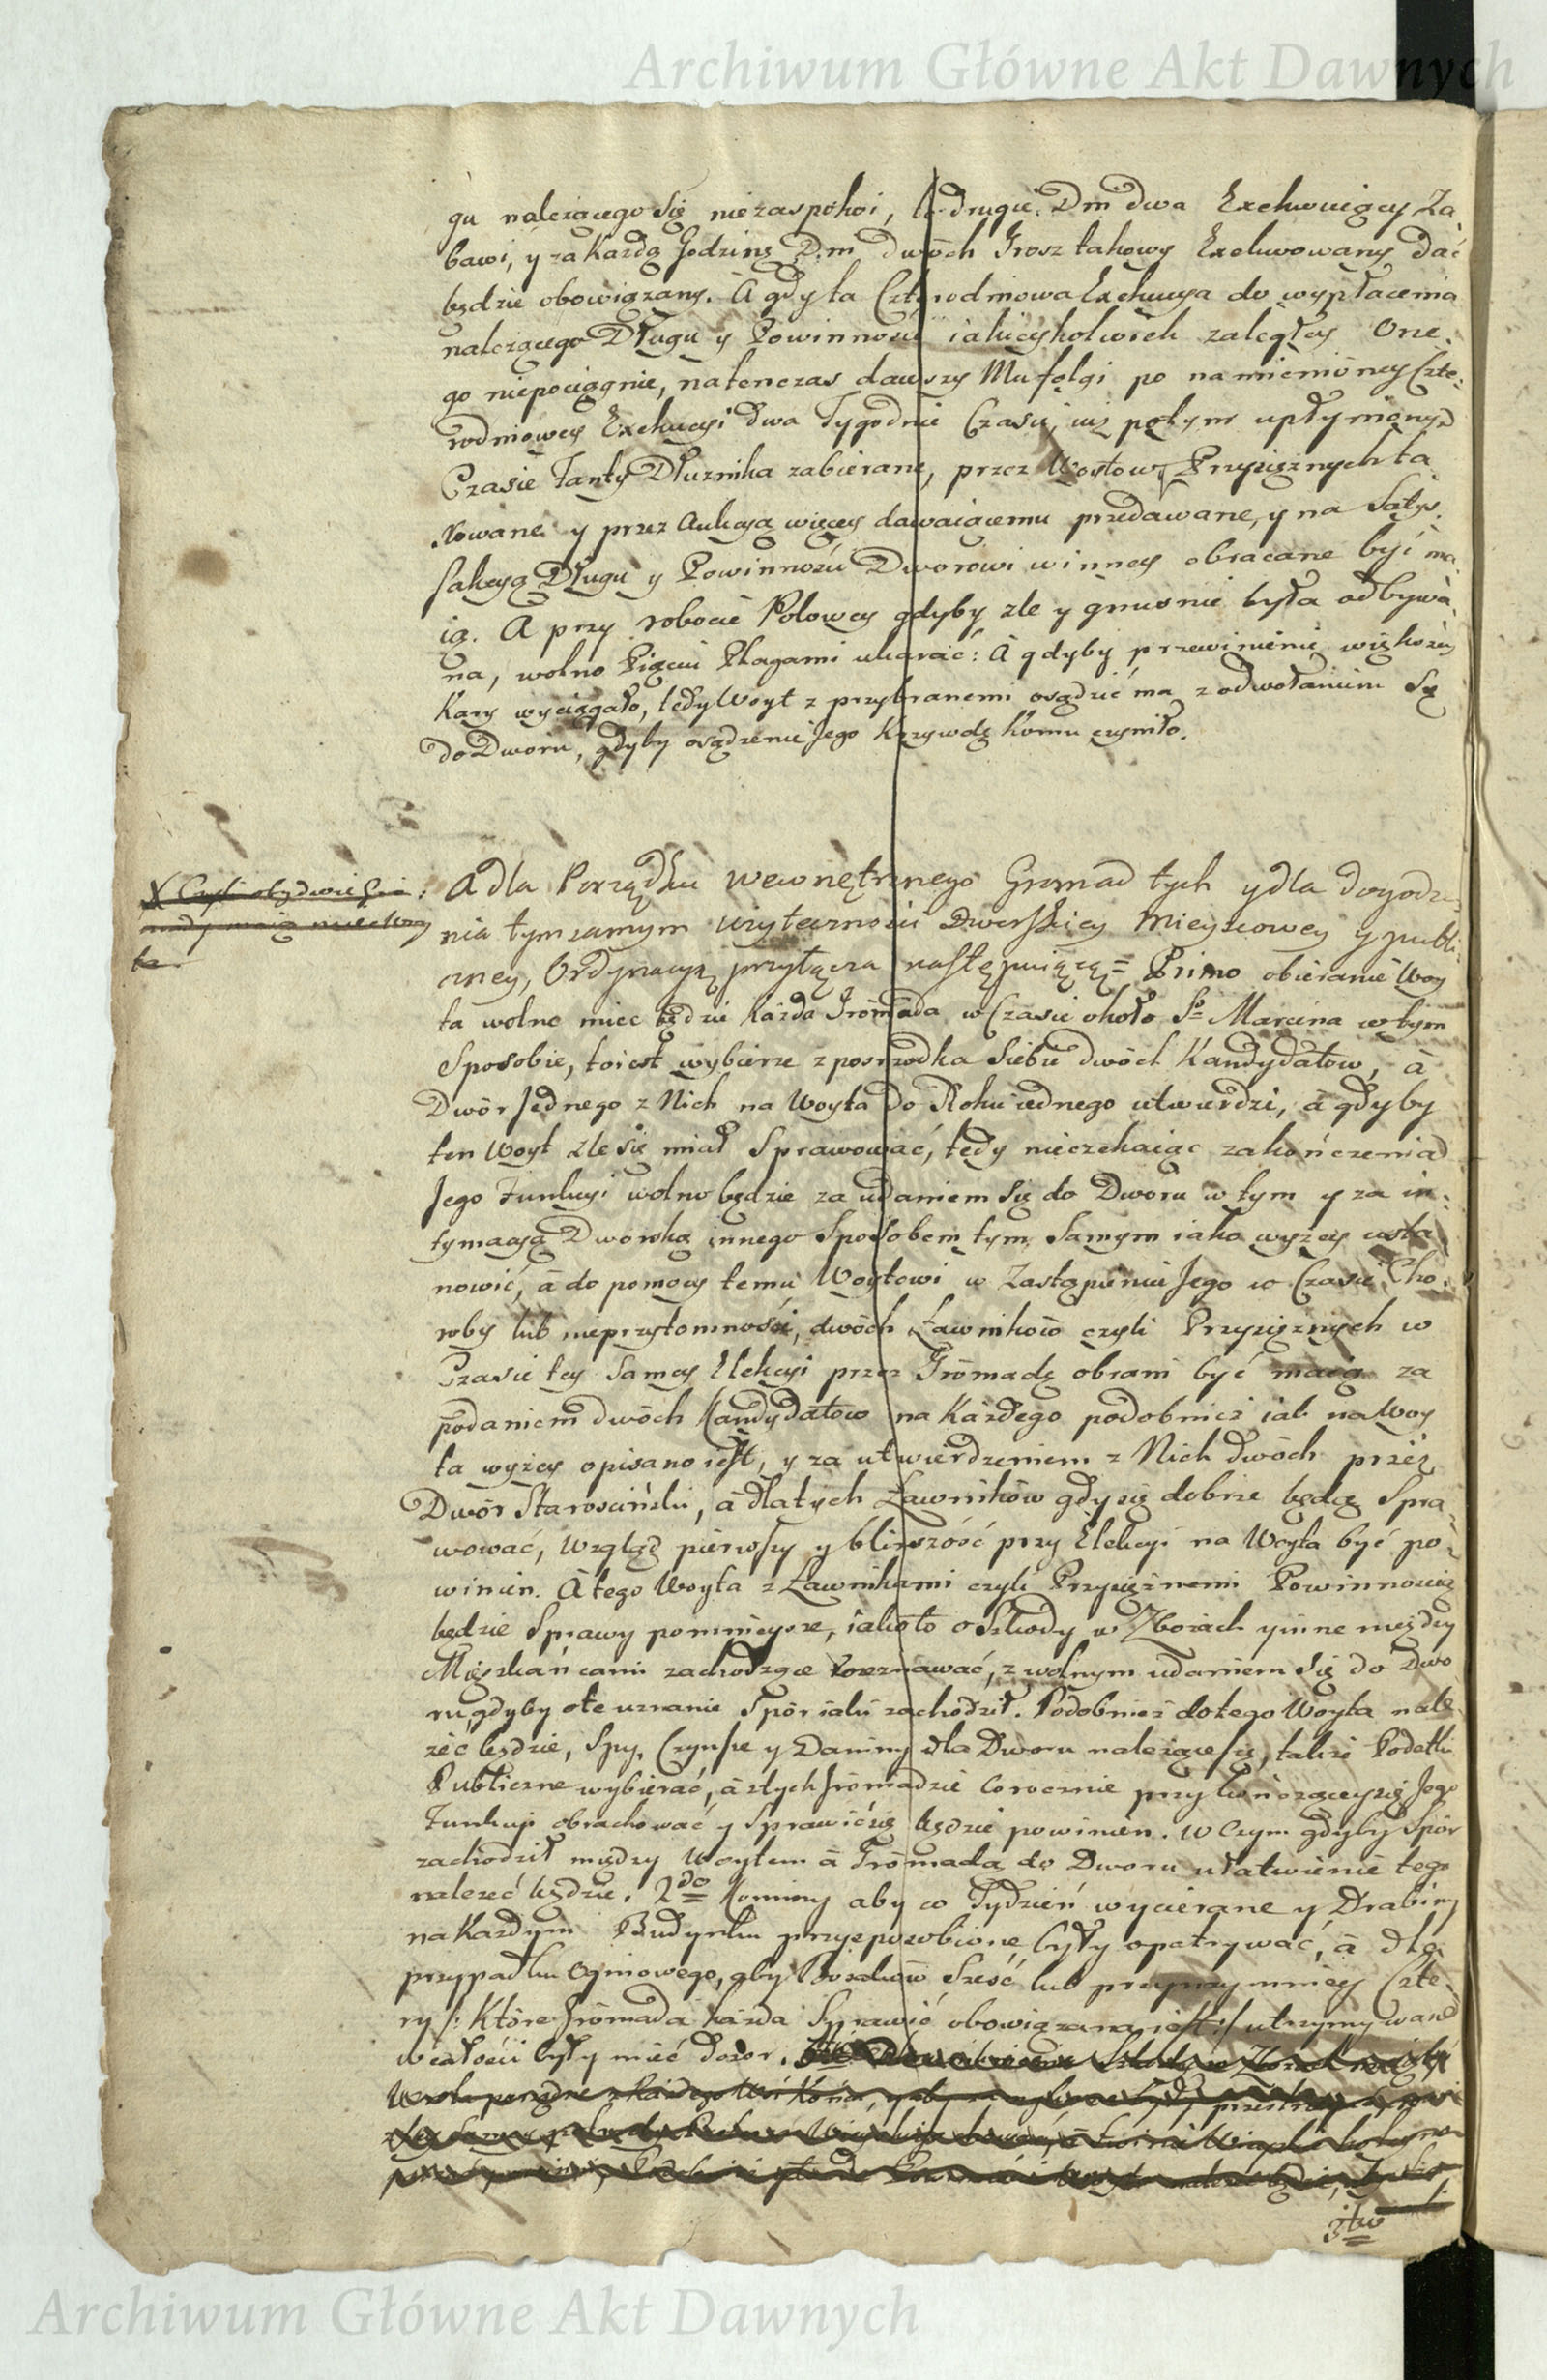 Archiwum Główne Akt Dawnych
gu należącego Się niezaspokoi, to drugie Dni dwa Exekwuiący Za
bawi, y za każdą Godzinę Dni dwóch Grosz takowy Exekwowany dać
będzie obowiązany. A gdy ta Czterodniowa Exekucya do wypłacenia
należącego Długu y Powinności iakieykolwiek zaległey One.
go niepociągnie, natenczas dawszy Mu folgi po namienióney Czte.
rodniowey Exekucyi dwa Tygodnie Czasu, iuż potym upłynionym
Czasie Fanty Dłużnika zabierane, przez Woytow Przysięznych ta
xowane y przez Aukcyą więcey dawaiącemu przedawane, y na Satys.
fakcyą Długu y Powinności Dworowi winney obracane być ma
ią. A przy robocie Polowey gdyby zle y gnusnie była odbywa.
na, wolno Pięcią Plagami ukarać: A gdyby przewinienie większey
Kary wyciągało, tedy Woyt z przybranemi osądzić ma z odwołaniem Się
do Dworu, gdyby osądzenie Jego Krzywdę komu czyniło.
X Czyli obydwie Gro
mady maią mieć Woy
ta
A dla Porządku wewnętrznego Gromad tych y dla dogodze
nia tym samym użyteczności Dworskiey Mieyscowey y publi
czney, Ordynacyą przyłącza następuiącą = Primo obieranie Woy
ta wolne mieć będzie każda Grómada w Czasie około S° Marcina w tym
Sposobie, toiest wybierze z posrzodka Siebie dwóch Kandydatow, à
Dwór Jednego z Nich na Woyta do Roku iednego utwierdzi, à gdyby
ten Woyt zle się miał Sprawować, tedy nieczekaiąc zakończenia
Jego Funkcyi wolno będzie za udaniem Się do Dworu w tym y za in.
tymacyą Dworską innego Sposobem tym Samym iako wyżey usta
nowić, à do pomocy temu Woytowi w Zastąpieniu Jego w Czasie Cho.
roby lub nieprzytomności, dwóch Ławników czyli Przysięznych w
Czasie tey Samey Elekcyi przez Grómadę obrani być maią za
podaniem dwóch Kandydatow na Każdego podobnież iak na Woy
ta wyżey opisano iest, y za utwierdzeniem z Nich dwóch przez
Dwór Starosciński, à dla tych Ławników gdy się dobrze będą Spra
wować, wzgląd pierwszy y bliższość przy Elekcyi na Woyta być po
winien. A tego Woyta z Ławnikami czyli Przysięznemi Powinnością
będzie Sprawy pomnieysze, iakoto o Szkody w Zbożach y inne między
Mięszkańcami zachodzące rozeznawać, z wolnym udaniem Się do Dwo
ru, gdyby o te uznanie Spór iaki zachodził. Podobnież do tego Woyta nale
żeć będzie, Szpy, Czynsze y Daniny dla Dworu należące się, także Podatki
Publiczne wybierać, à z tych Grómadzie Corocznie przy kończącey się Jego
Funkcyi obrachować y Sprawić się będzie powinien. W czym gdyby Spór
zachodził między Woytem à Grómadą do Dworu ułatwienie tego
należeć będzie. 2do Kominy aby co Tydzień wycierane y Drabiny
na Każdym Budynku przysposobione były opatrywać, à dla
przypadku Ogniowego, aby Bosaków Sześć lub przynaymniey Czte.
ry /: Które Grómada każda Sprawić obowiązana iest :/ utrzymywane
w całości były mieć dozor.
3tio
Archiwum Główne Akt Dawnych